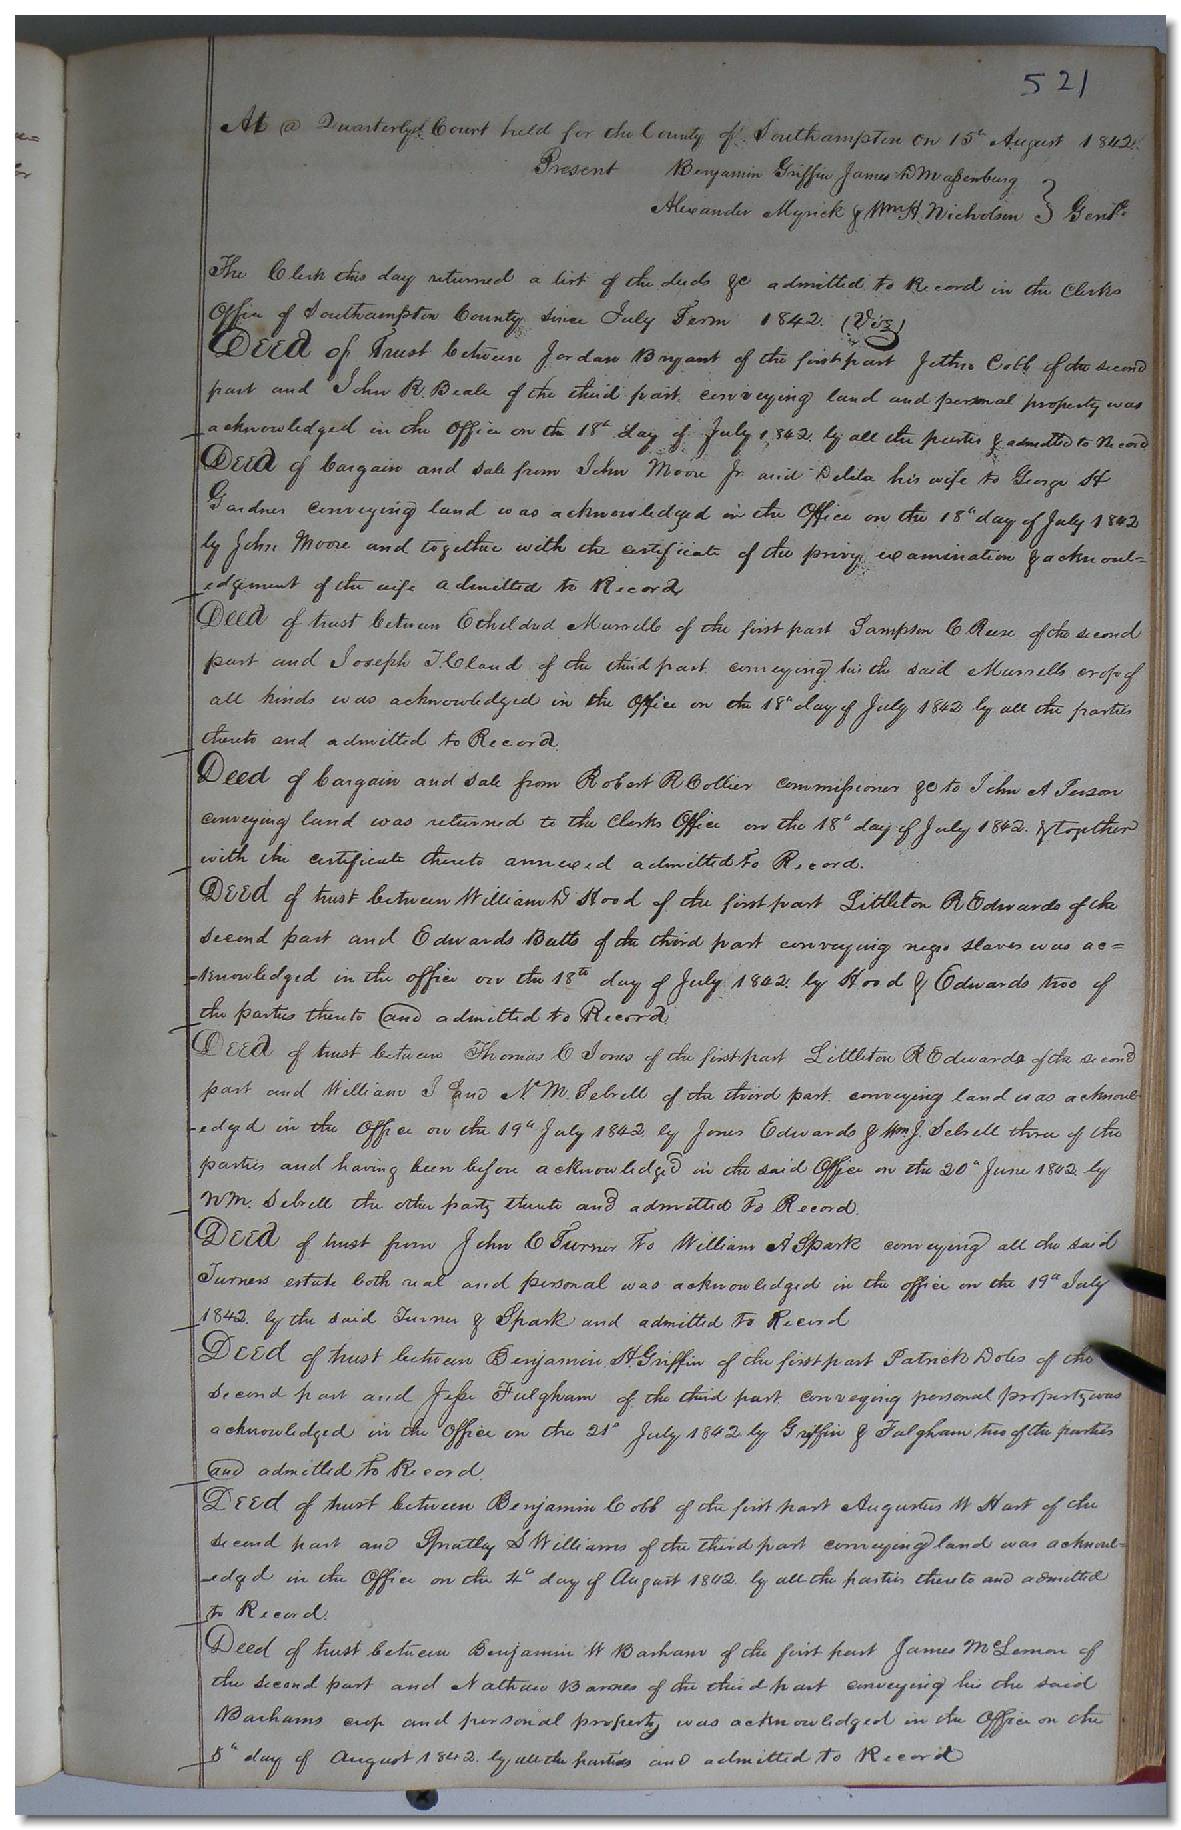 521
At @ Quarterly Court held for the County of Southampton on 15th August 1842.
Present Benjamin Griffin James D Massenburg
Alexander Myrick & Wm H. Nicholson } Gent.
The Clerk this day returned a list of the deeds &c admitted to Record in the Clerks
Office of Southampton County since July Term 1842. (Viz)
Deed of Trust between Jordan Bryant of the first part Jethro Cobb of the second
part and John R. Beale of the third part conveying land and personal property was
acknowledged in the Office on the 18th day of July 1842. by all the parties & admitted to Record
Deed of bargain and sale from John Moore Jr and Delila his wife to George H
Gardner conveying land was acknowledged in the Office on the 18th day of July 1842
by John Moore and together with the certificate of the privy examination & acknowl=
edgement of the wife admitted to Record
Deed of trust between Etheldred Murrell of the first part Sampson C Reese of the second
part and Joseph T Claud of the third part conveying his the said Murrells crop of
all kinds was acknowledged in the Office on the 18th day of July 1842 by all the parties
thereto and admitted to Record.
Deed of bargain and sale from Robert R Collier commissioner &c to John A Person
conveying land was returned to the Clerks Office on the 18th day of July 1842. & together
with the certificate thereto annexed admitted to Record.
Deed of trust between William D Hood of the first part Littleton R Edwards of the
second part and Edwards Butts of the third part conveying negro slaves was ac=
=knowledged in the office on the 18th day of July 1842. by Hood & Edwards two of
the parties thereto and admitted to Record
Deed of trust between Thomas C Jones of the first part Littleton R Edwards of the second
part and William J and N. M. Sebrell of the third part conveying land was acknowl-
-edged in the Office on the 19th July 1842 by Jones Edwards & Wm J. Sebrell three of the
parties and having been before acknowledged in the said Office on the 20th June 1842 by
N M. Sebrell the other party thereto and admitted to Record.
Deed of trust from John C Turner to William A Spark conveying all the said
Turners estate both real and personal was acknowledged in the office on the 19th July
1842. by the said Turner & Spark and admitted to Record
Deed of trust between Benjamin H. Griffin of the first part Patrick Doles of the
second part and Jesse Fulgham of the third part conveying personal property was
acknowledged in the Office on the 21st July 1842 by Griffin & Fulgham two of the parties
and admitted to Record.
Deed of trust between Benjamin Cobb of the first part Augustus W Hart of the
second part and Spratley S Williams of the third part conveying land was acknowl-
-edged in the Office on the 4th day of August 1842. by all the parties thereto and admitted
to Record.
Deed of trust between Benjamin W Barham of the first part James McLemore of
the second part and Nathan Barnes of the third part conveying his the said
Barhams crop and personal property was acknowledged in the Office on the
5th day of August 1842. by all the parties and admitted to Record